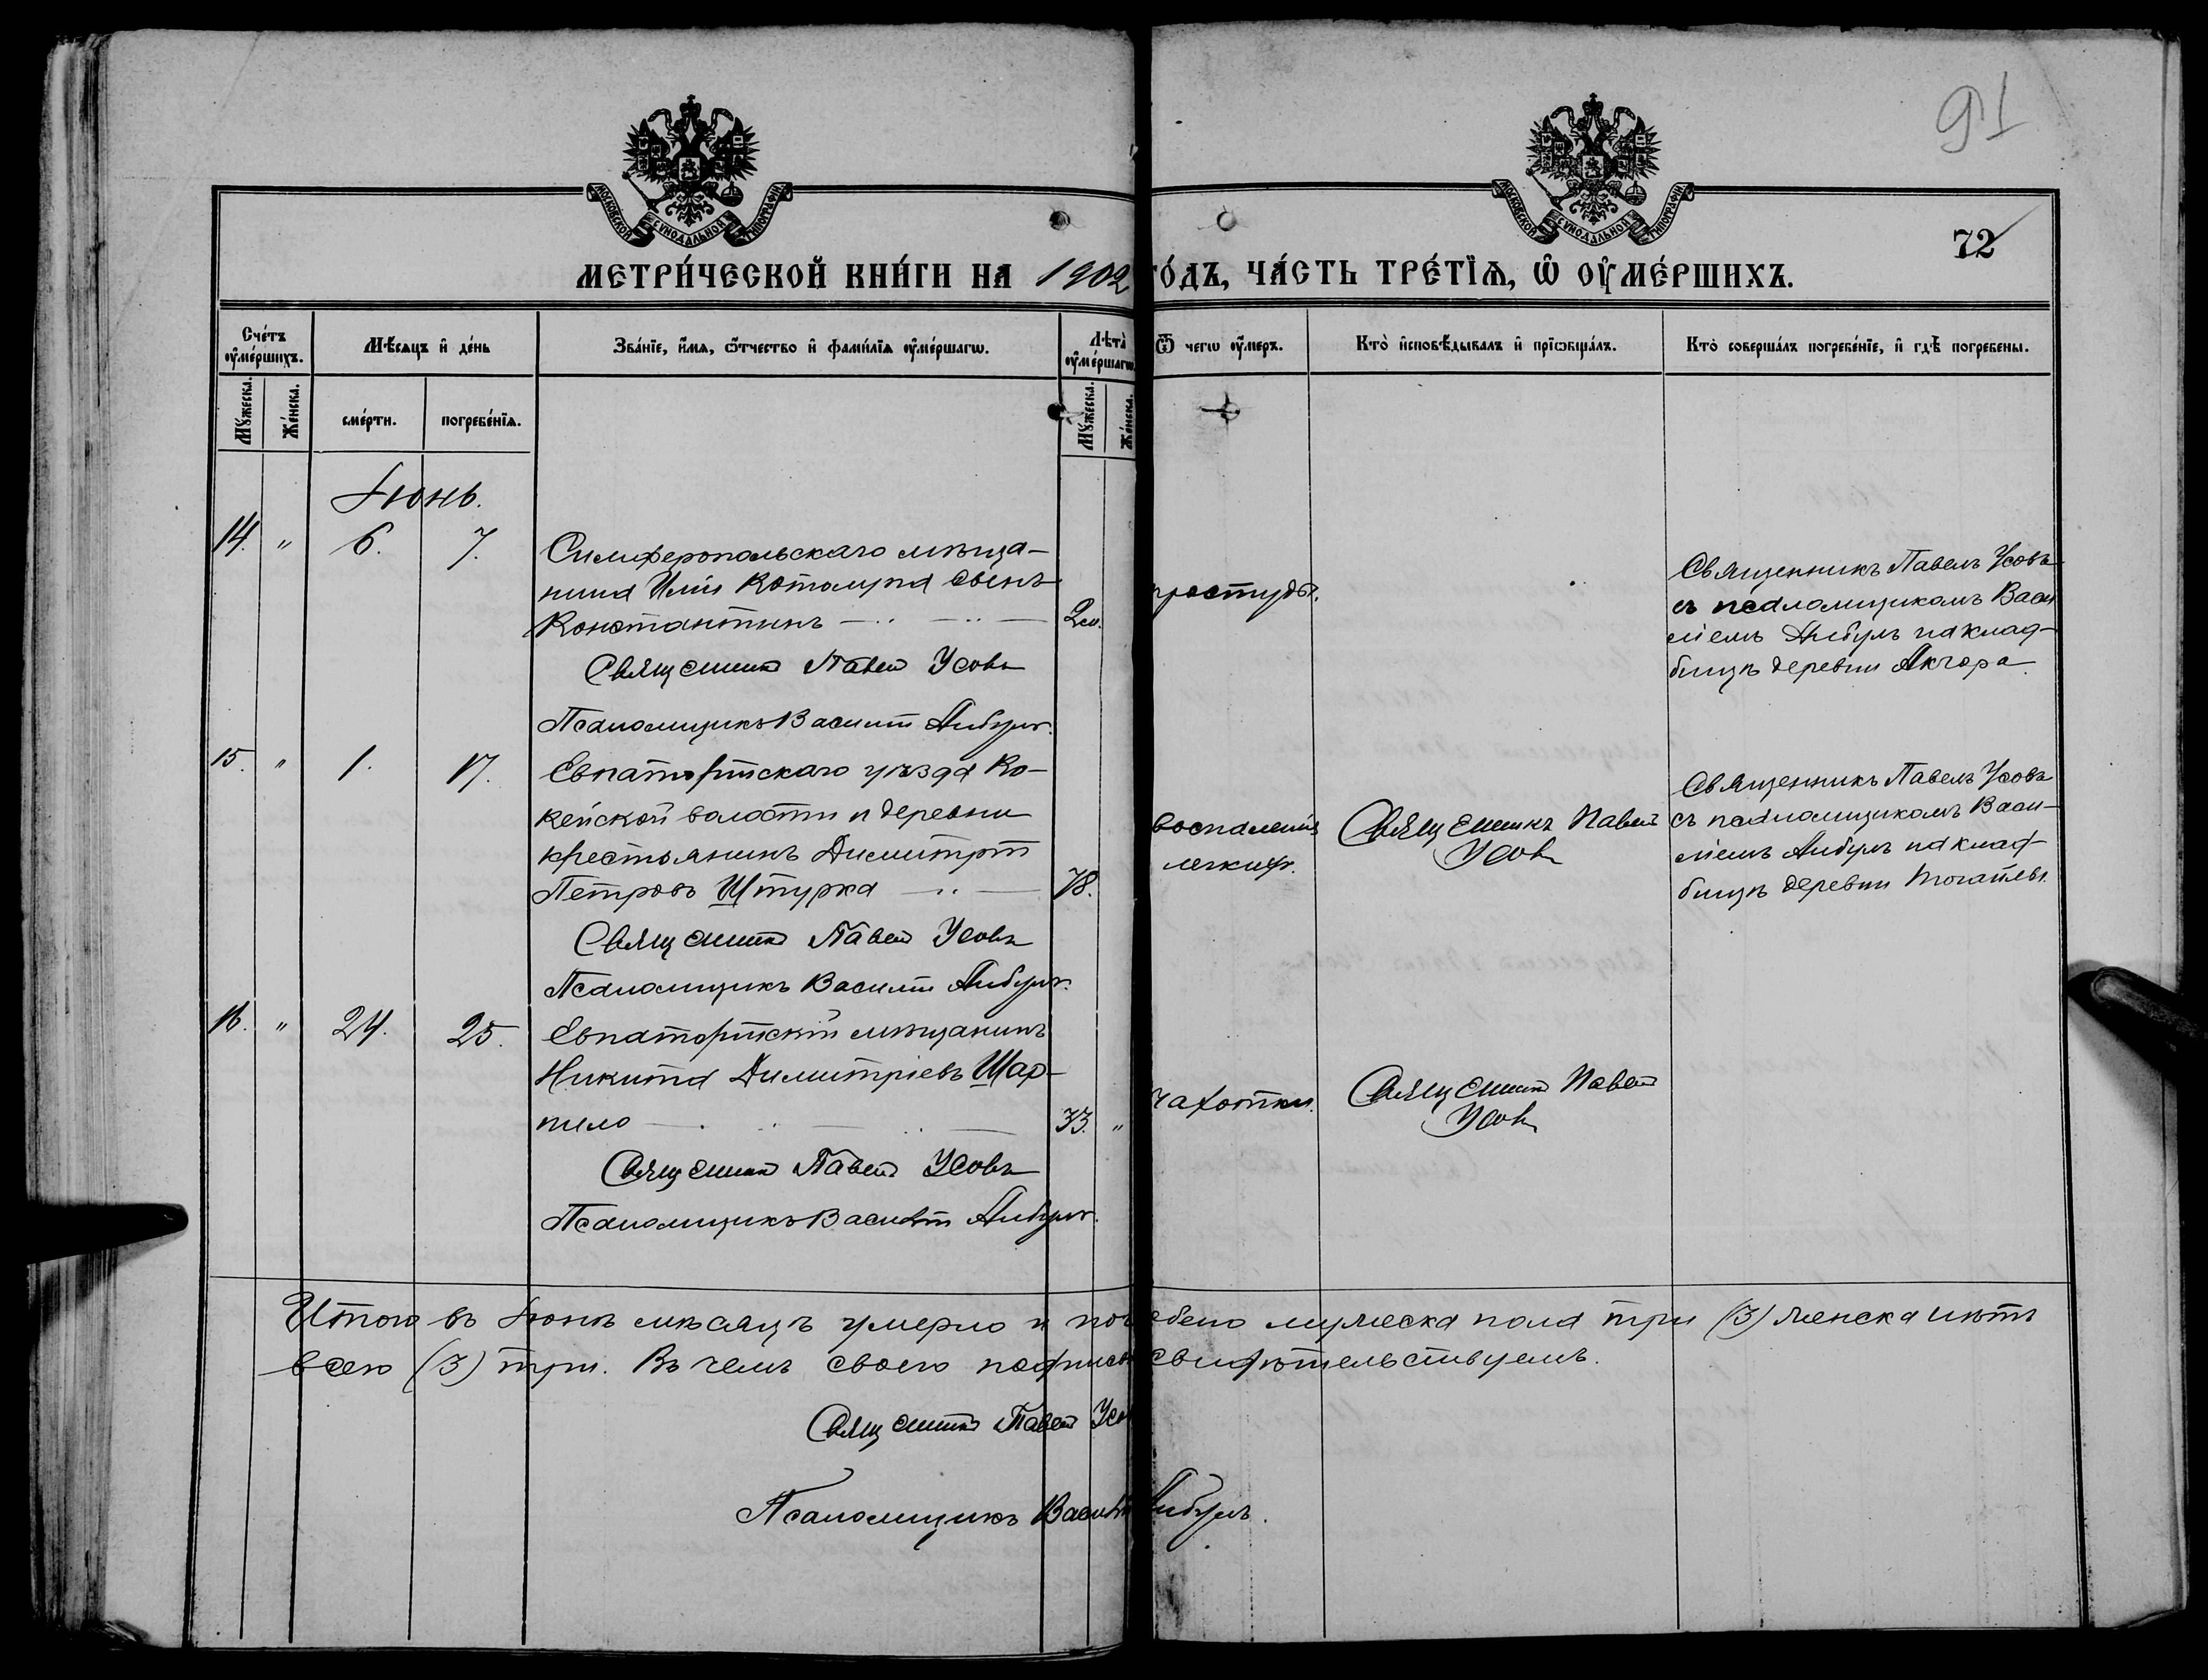 91
72
МОСКОВСКОЙ СѴНОДАЛЬНОЙ ТИПОГРАФІИ
МОСКОВСКОЙ СѴНОДАЛЬНОЙ ТИПОГРАФІИ
МЕТРИ́ЧЕСКОЙ КНИ́ГИ НА 1902 ГО́ДЪ, ЧА́СТЬ ТРЕ́ТЇѦ, Ѡ҆ ОУ҆МЕ́РШИХЪ.
Сче́тъ оу҆ме́ршихъ.
Мꙋ́жеска.
Же́нска.
Мѣ́сяцъ и҆ де́нь
сме́рти.
погребе́нїѧ.
Зва́нїе, и҆́мѧ, ѻ҆́тчество и҆ фами́лїѧ оу҆ме́ршагѡ.
Лѣта̀ оу҆ме́ршагѡ.
Мꙋ́жеска.
Же́нска.
Ѿ чегѡ оу҆́меръ.
Кто̀ и҆сповѣ́дывалъ и҆ прїѡбща́лъ.
Кто̀ соверша́лъ погребе́нїе, и҆ гдѣ̀ погребены.
Іюнь.
14. " 6. 7.
Симферопольскаго мѣща-
нина Иліи Котомуха сынъ
Константинъ
2 м.
Священникъ Павелъ Усовъ
Псаломщикъ Василій Анбулъ.
простуды.
Священникъ Павелъ Усовъ
съ псаломщикомъ Васи
ліемъ Анбулъ на клад-
бищѣ деревни Акчора.
15. " 1. 17.
Евпаторійскаго уѣзда Ко-
кейской волости и деревни
крестьянинъ Димитрій
Петровъ Штурка
78.
Священникъ Павелъ Усовъ
Псаломщикъ Василій Анбулъ.
воспаленія
легкихъ.
Священникъ Павелъ
Усовъ
Священникъ Павелъ Усовъ
съ псаломщикомъ Васи-
ліемъ Анбулъ на клад-
бищѣ деревни Тогайлы.
16. " 24. 25.
Евпаторійскій мѣщанинъ
Никита Димитріевъ Шар-
пило
33. "
Священникъ Павелъ Усовъ
Псаломщикъ Василій Анбулъ.
чахотки.
Священникъ Павелъ
Усовъ
Итого въ Іюнѣ мѣсяцѣ умерло и погребено мужеска пола три (3) женска нѣтъ
всего (3) три. Въ чемъ своею подписью свидѣтельствуемъ.
Священникъ Павелъ Усовъ
Псаломщикъ Василій Анбулъ.